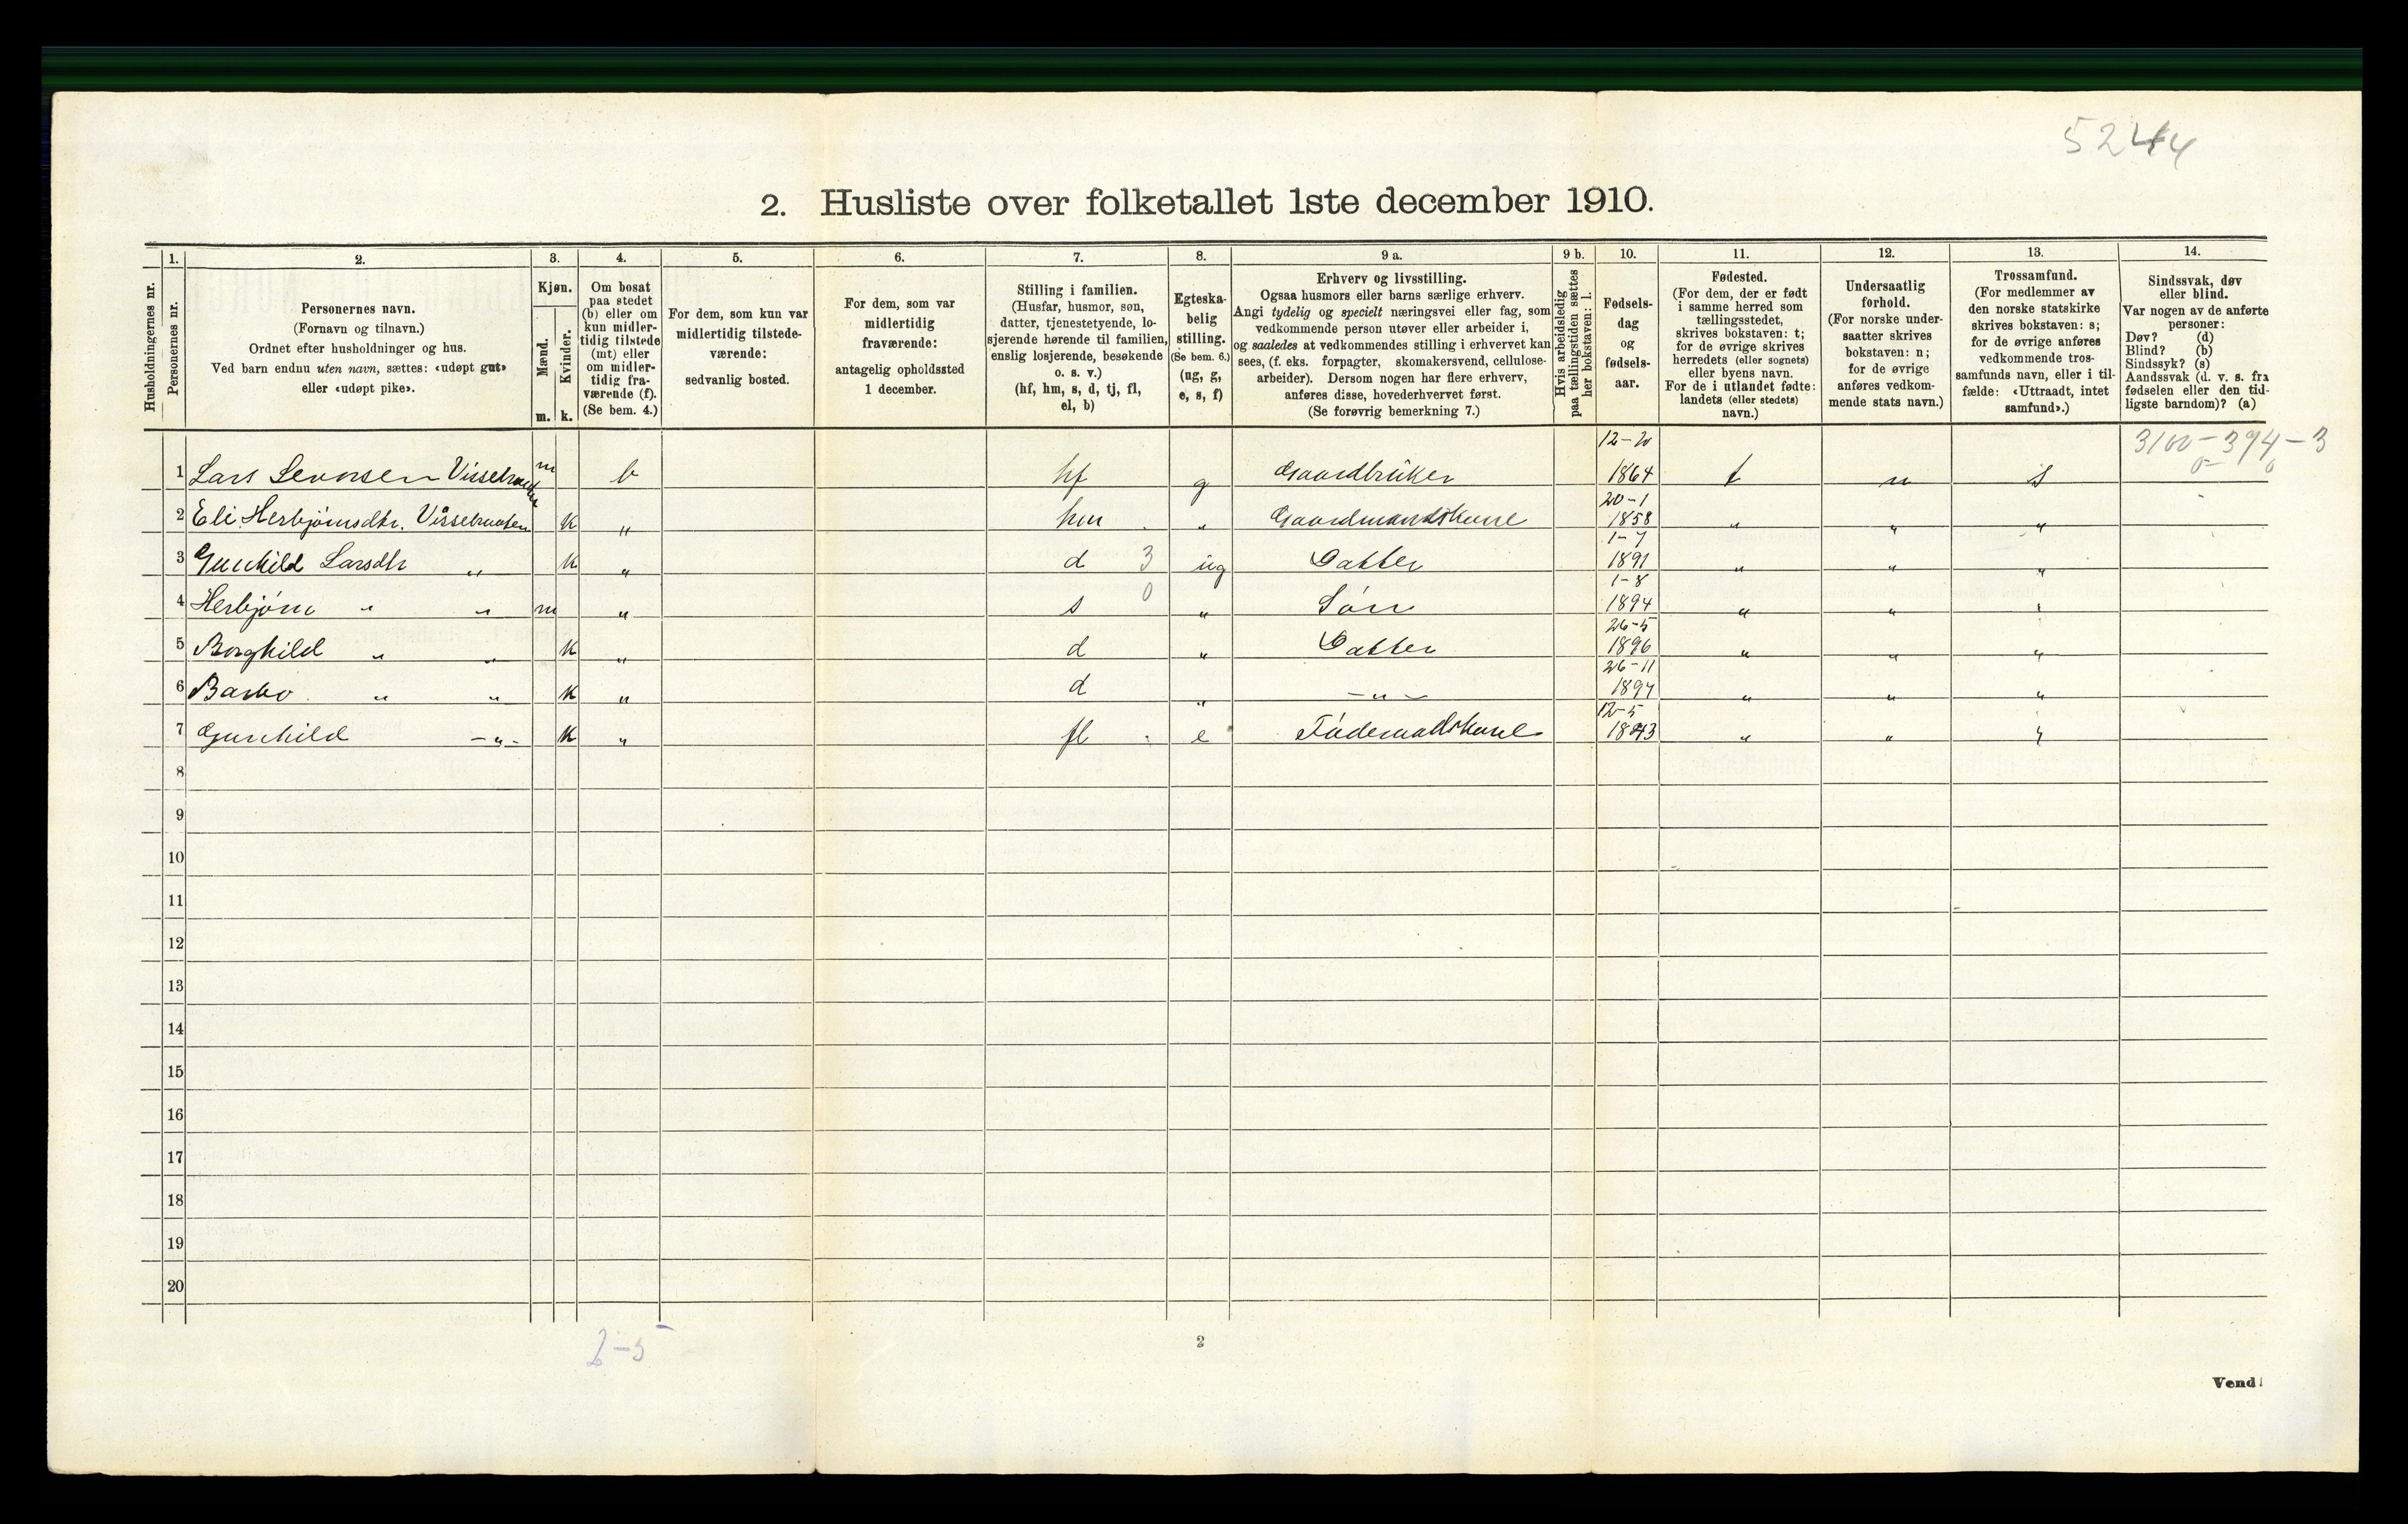 5244
2. Husliste over folketallet 1ste december 1910.
Husholdningernes nr.
1.
Personernes nr.
2.
Personernes navn.
(Fornavn og tilnavn.)
Ordnet efter husholdninger og hus.
Ved barn endnu uten navn, sættes: «udøpt gut»
eller «udøpt pike».
3.
Kjøn.
Mænd.
m.
Kvinder.
k.
4.
Om bosat
paa stedet
(b) eller om
kun midler-
tidig tilstede
(mt) eller
om midler-
tidig fra-
værende (f).
(Se bem. 4.)
5.
For dem, som kun var
midlertidig tilstede-
værende:
sedvanlig bosted.
6.
For dem, som var
midlertidig
fraværende:
antagelig opholdssted
1 december.
7.
Stilling i familien.
(Husfar, husmor, søn,
datter, tjenestetyende, lo-
sjerende hørende til familien,
enslig losjerende, besøkende
o. s. v.)
(hf, hm, s, d, tj, fl,
el, b)
8.
Egteska-
belig
stilling.
(Se bem. 6.)
(ug, g,
e, s, f)
9 a.
Erhverv og livsstilling.
Ogsaa husmors eller barns særlige erhverv.
Angi tydelig og specielt næringsvei eller fag, som
vedkommende person utøver eller arbeider i,
og saaledes at vedkommendes stilling i erhvervet kan
sees, (f. eks. forpagter, skomakersvend, cellulose-
arbeider). Dersom nogen har flere erhverv,
anføres disse, hovederhvervet først.
(Se forøvrig bemerkning 7.)
9 b.
Hvis arbeidsledig
paa tællingstiden sættes
her bokstaven: l.
10.
Fødsels-
dag
og
fødsels-
aar.
11.
Fødested.
(For dem, der er født
i samme herred som
tællingsstedet,
skrives bokstaven: t;
for de øvrige skrives
herredets (eller sognets)
eller byens navn.
For de i utlandet fødte:
landets (eller stedets)
navn.)
12.
Undersaatlig
forhold.
(For norske under-
saatter skrives
bokstaven: n;
for de øvrige
anføres vedkom-
mende stats navn.)
13.
Trossamfund.
(For medlemmer av
den norske statskirke
skrives bokstaven: s;
for de øvrige anføres
vedkommende tros-
samfunds navn, eller i til-
fælde: «Uttraadt, intet
samfund».)
14.
Sindssvak, døv
eller blind.
Var nogen av de anførte
personer:
Døv? (d)
Blind? (b)
Sindssyk? (s)
Aandssvak (d. v. s. fra
fødselen eller den tid-
ligste barndom)? (a)
3100-394-3
0 0
1 Lars Sevorsen m b hf g Gaardbruker 12-2 1864 t n s
2 Eli Herbjørnsdtr. Visselraaten k „ hm „ Gaardmandskone 20-1 1858 „ „ „
3 Gunhild Larsdtr „ k „ d 3 ug Datter 1-7 1891 „ „ „
4 Herbjørn „ „ m „ s 0 „ Søn 1-8 1894 „ „ „
5 Borghild „ „ k „ d „ Datter 26-5 1896 „ „ „
6 Barbo „ „ k „ d „ -„- 26-11 1897 „ „ „
7 Gunhild -„- k „ fl e Føderaadskone 12-5 1843 „ „ „
8
9
10
11
12
13
14
15
16
17
18
19
20
2-5
2
Vend!